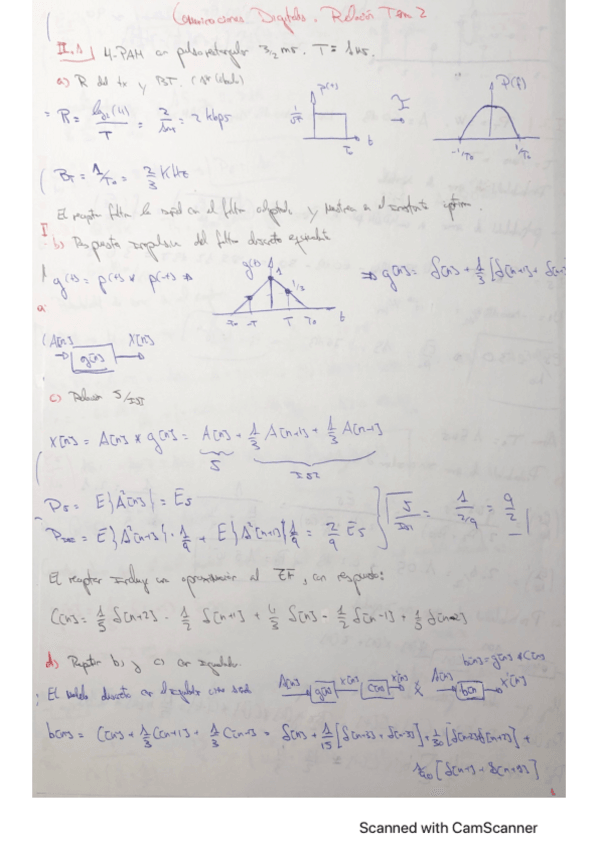 Comunicaciones Digitales. Relación Tema 2
II.1) 4-PAM con pulso rectangular 3/2 ms. T = 1 ms.
a) R del tx y BT. (1er lóbulo)
= R = log2(4)/T = 2/1ms = 2 kbps
p(t) P(f)
t
To -1/To 1/To
BT = 1/To = 2/3 KHz
El receptor filtra la señal con el filtro adaptado y muestrea en el instante óptimo.
b) Respuesta impulsiva del filtro discreto equivalente
g(t) = p(t) * p(-t) ⇒ g(t) 1 1/3 -To -T T To t ⇒ g[n] = δ[n] + 1/3 [δ[n+1] + δ[n-
A[n] X[n]
g[n]
c) Relación S/ISI
X[n] = A[n] * g[n] = A[n] + 1/3 A[n+1] + 1/3 A[n-1]
S ISI
Ps = E{A²[n]} = Es
PISI = E{A²[n+1]}·1/9 + E{A²[n-1]}1/9 = 2/9 Es S/ISI = 1/(2/9) = 9/2
El receptor incluye un aproximación al ZF, con respuesta:
C[n] = 1/5 δ[n+2] - 1/2 δ[n+1] + 4/3 δ[n] - 1/2 δ[n-1] + 1/5 δ[n-2]
d) Repetir b) y c) con igualador.
b[n] = g[n] * C[n]
El modelo discreto con el igualador será A[n] g[n] X[n] C[n] X'[n] A[n] b[n] X'[n]
b[n] = C[n] + 1/3 C[n+1] + 1/3 C[n-1] = δ[n] + 1/15 [δ[n-3] + δ[n+3]] + 1/30 [δ[n-2] + δ[n+2]] +
[δ[n-1] + δ[n+1]]
Scanned with CamScanner